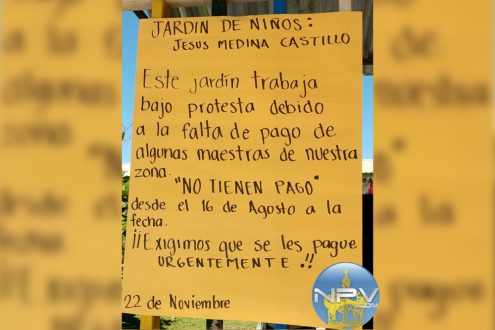 JARDIN DE NIÑOS:
JESUS MEDINA CASTILLO
Este jardín trabaja
bajo protesta debido
a la falta de pago de
algunas maestras de nuestra
zona.
"NO TIENEN PAGO"
desde el 16 de Agosto a la
fecha.
¡¡Exigimos que se les pague
URGENTEMENTE!!
22 de Noviembre
NPV
.COM